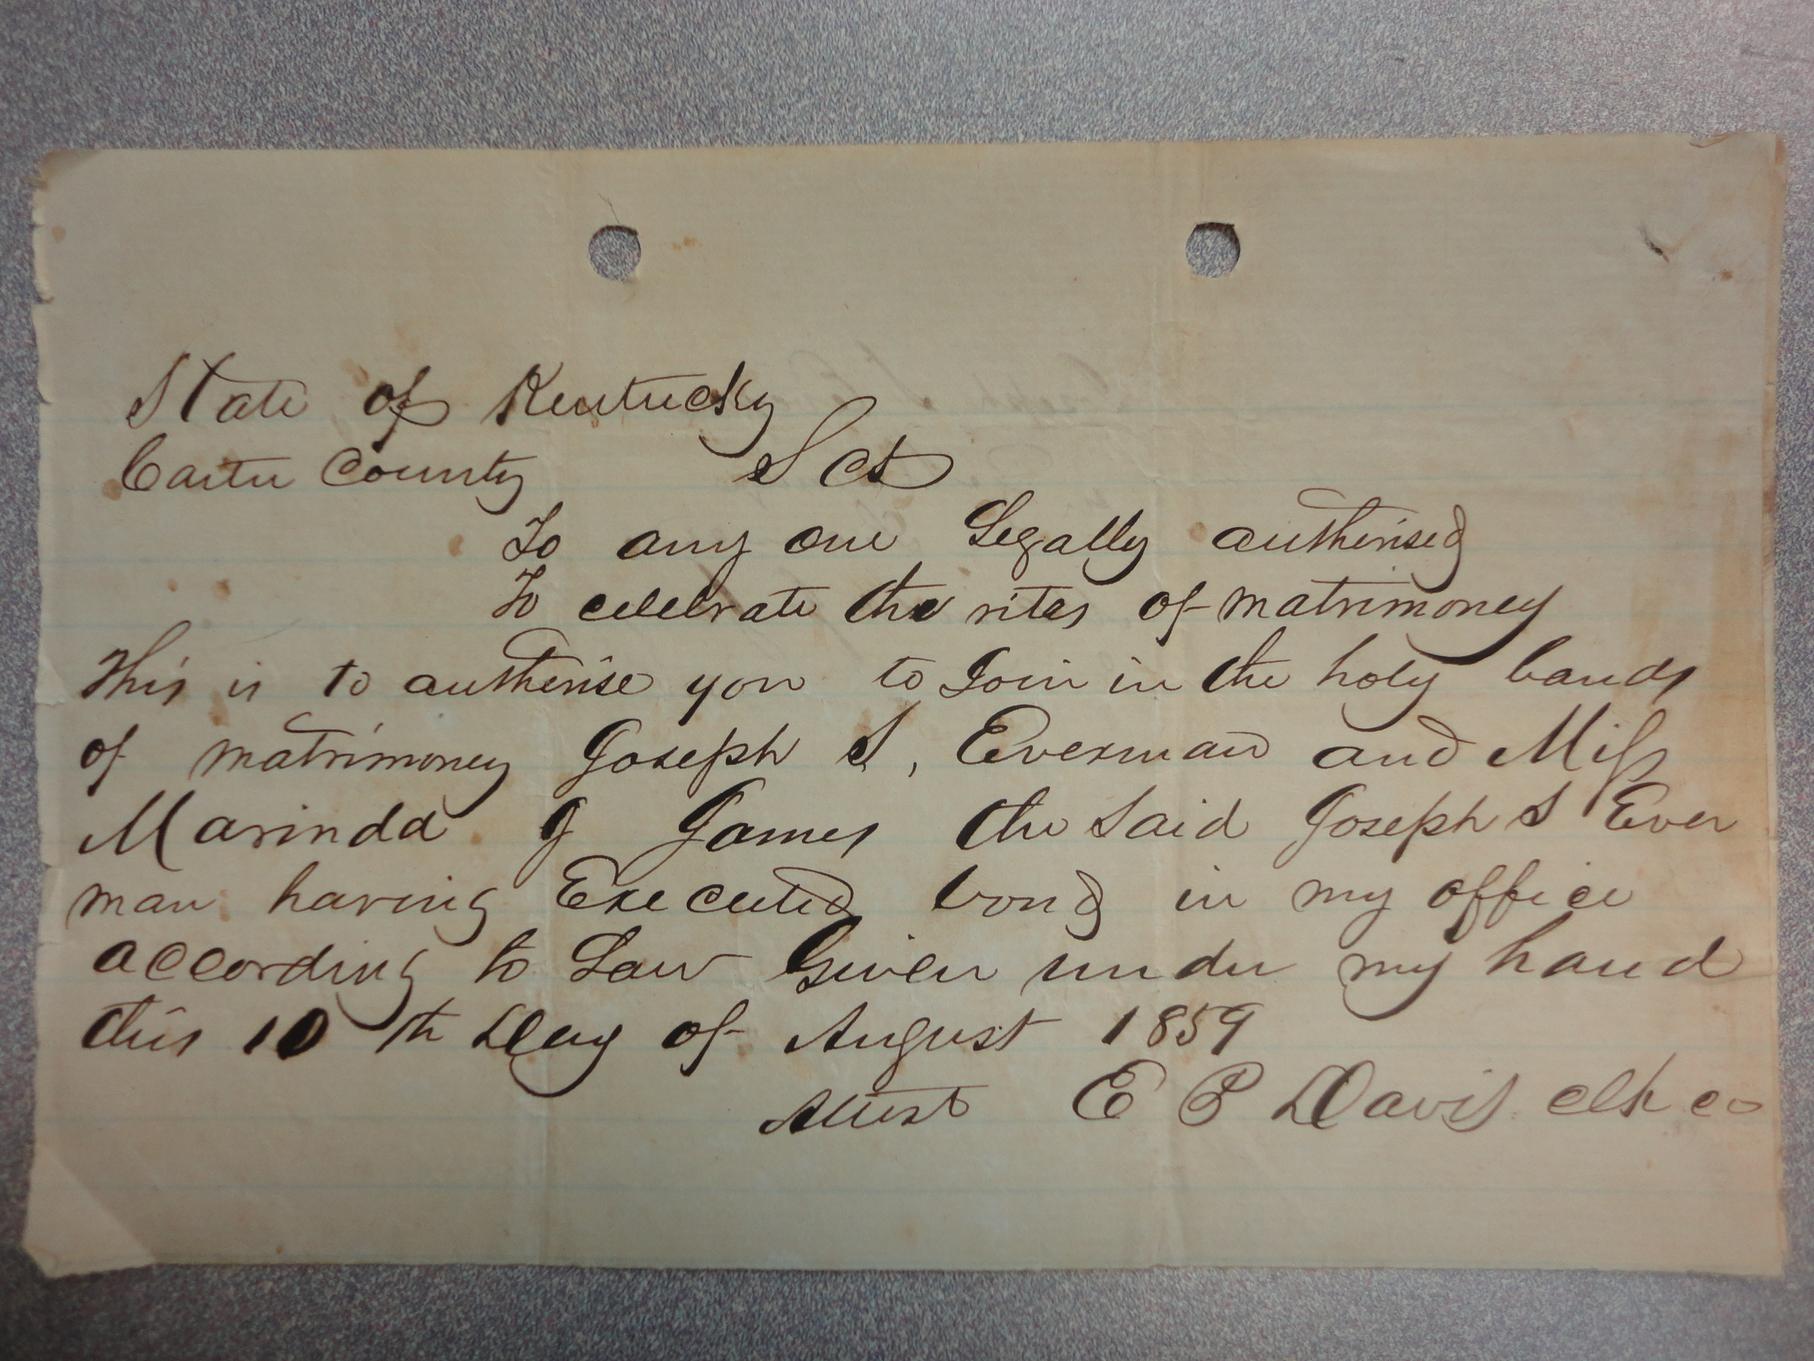 State of Kentucky
Carter County Sct
To any one Legally autherised
To celebrate the rites of matrimoney
This is to autherise you to Join in the holy bands
of matrimoney Joseph S, Everman and Miss
Marinda J James the Said Joseph S Ever
man having Executed bond in my office
according to Law Given under my hand
this 10th Day of August 1859
Attest E P Davis clk co